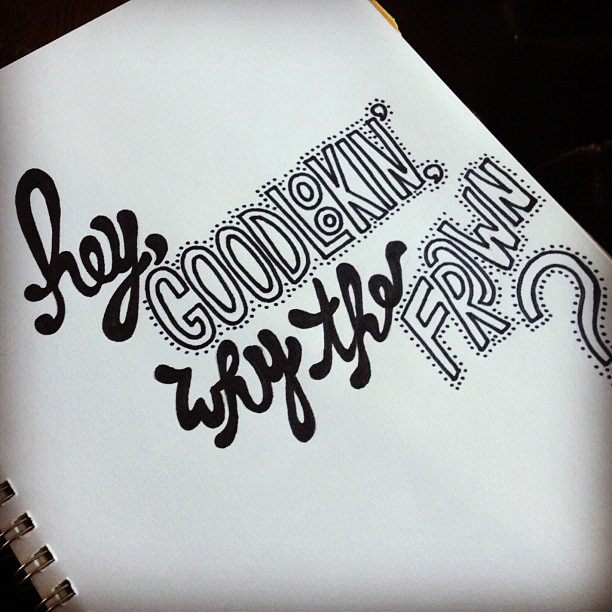 hey, GOODLOOKIN',
why the FROWN?